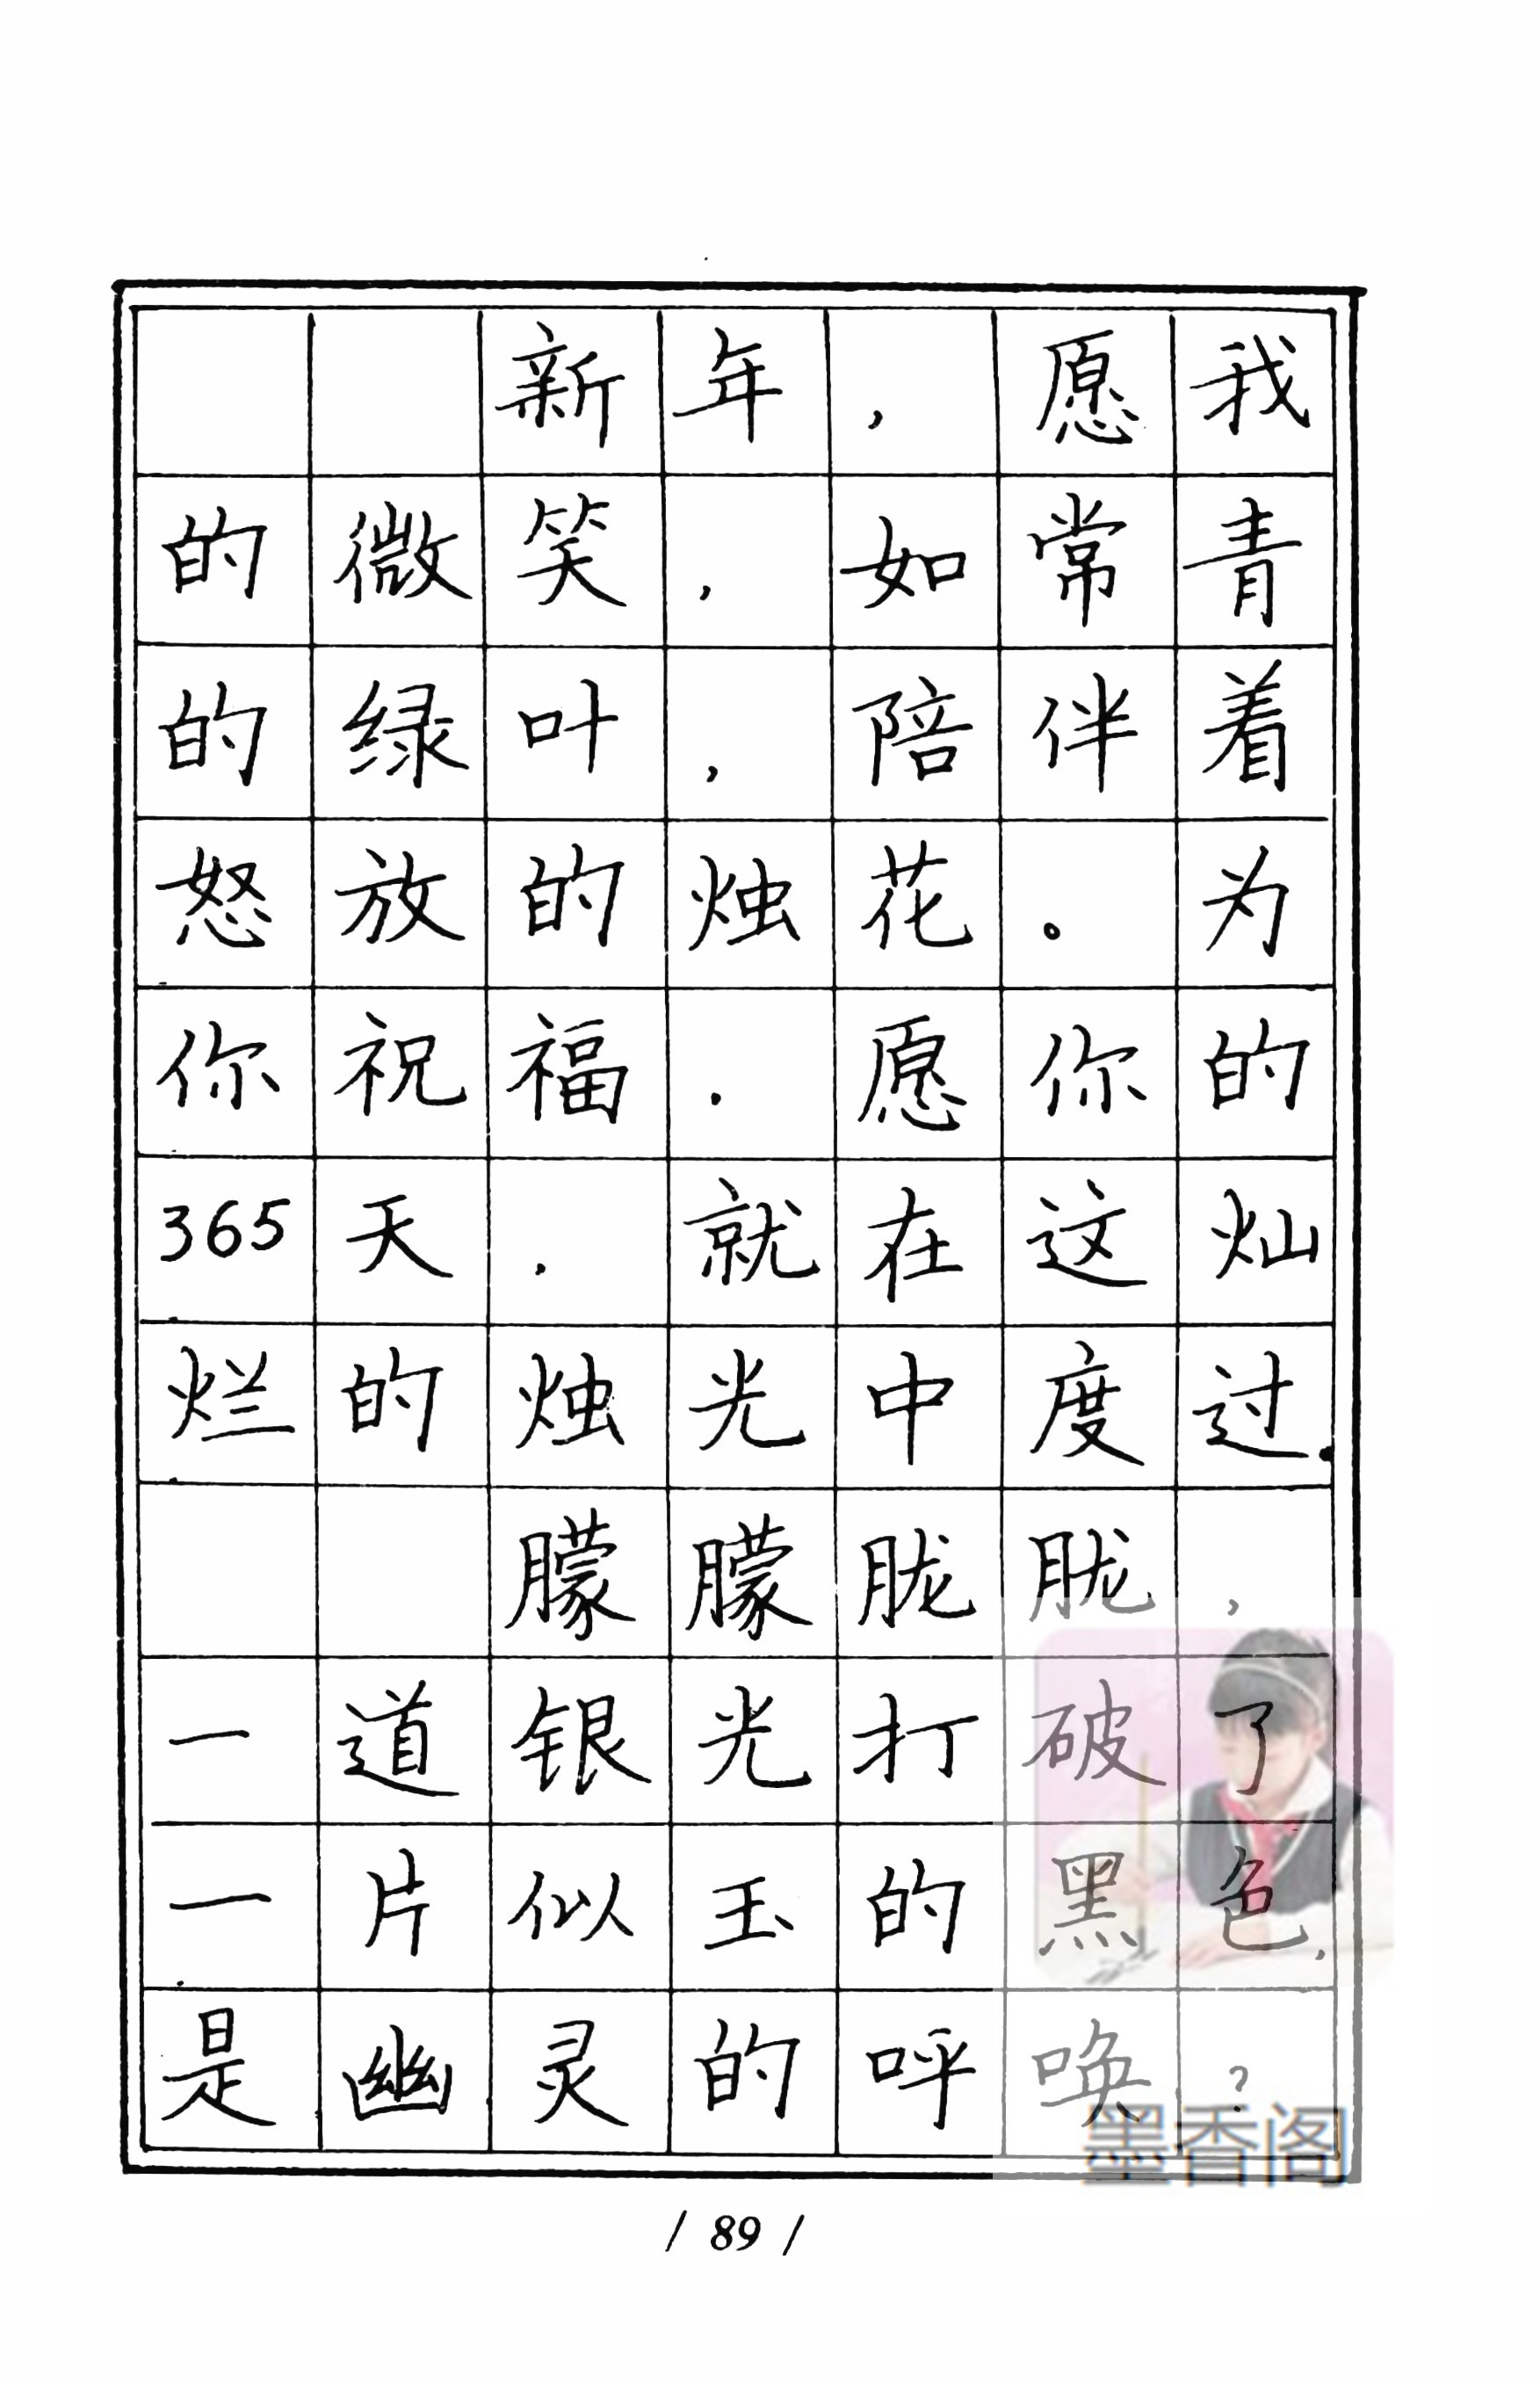 新年，愿我
的微笑，如常青
的绿叶，陪伴着
怒放的烛花。为
你祝福，愿你的
365天，就在这灿
烂的烛光中度过.
朦朦胧胧，
一道银光打破了
一片似玉的黑色，
是幽灵的呼唤？
墨香阁
/ 89 /